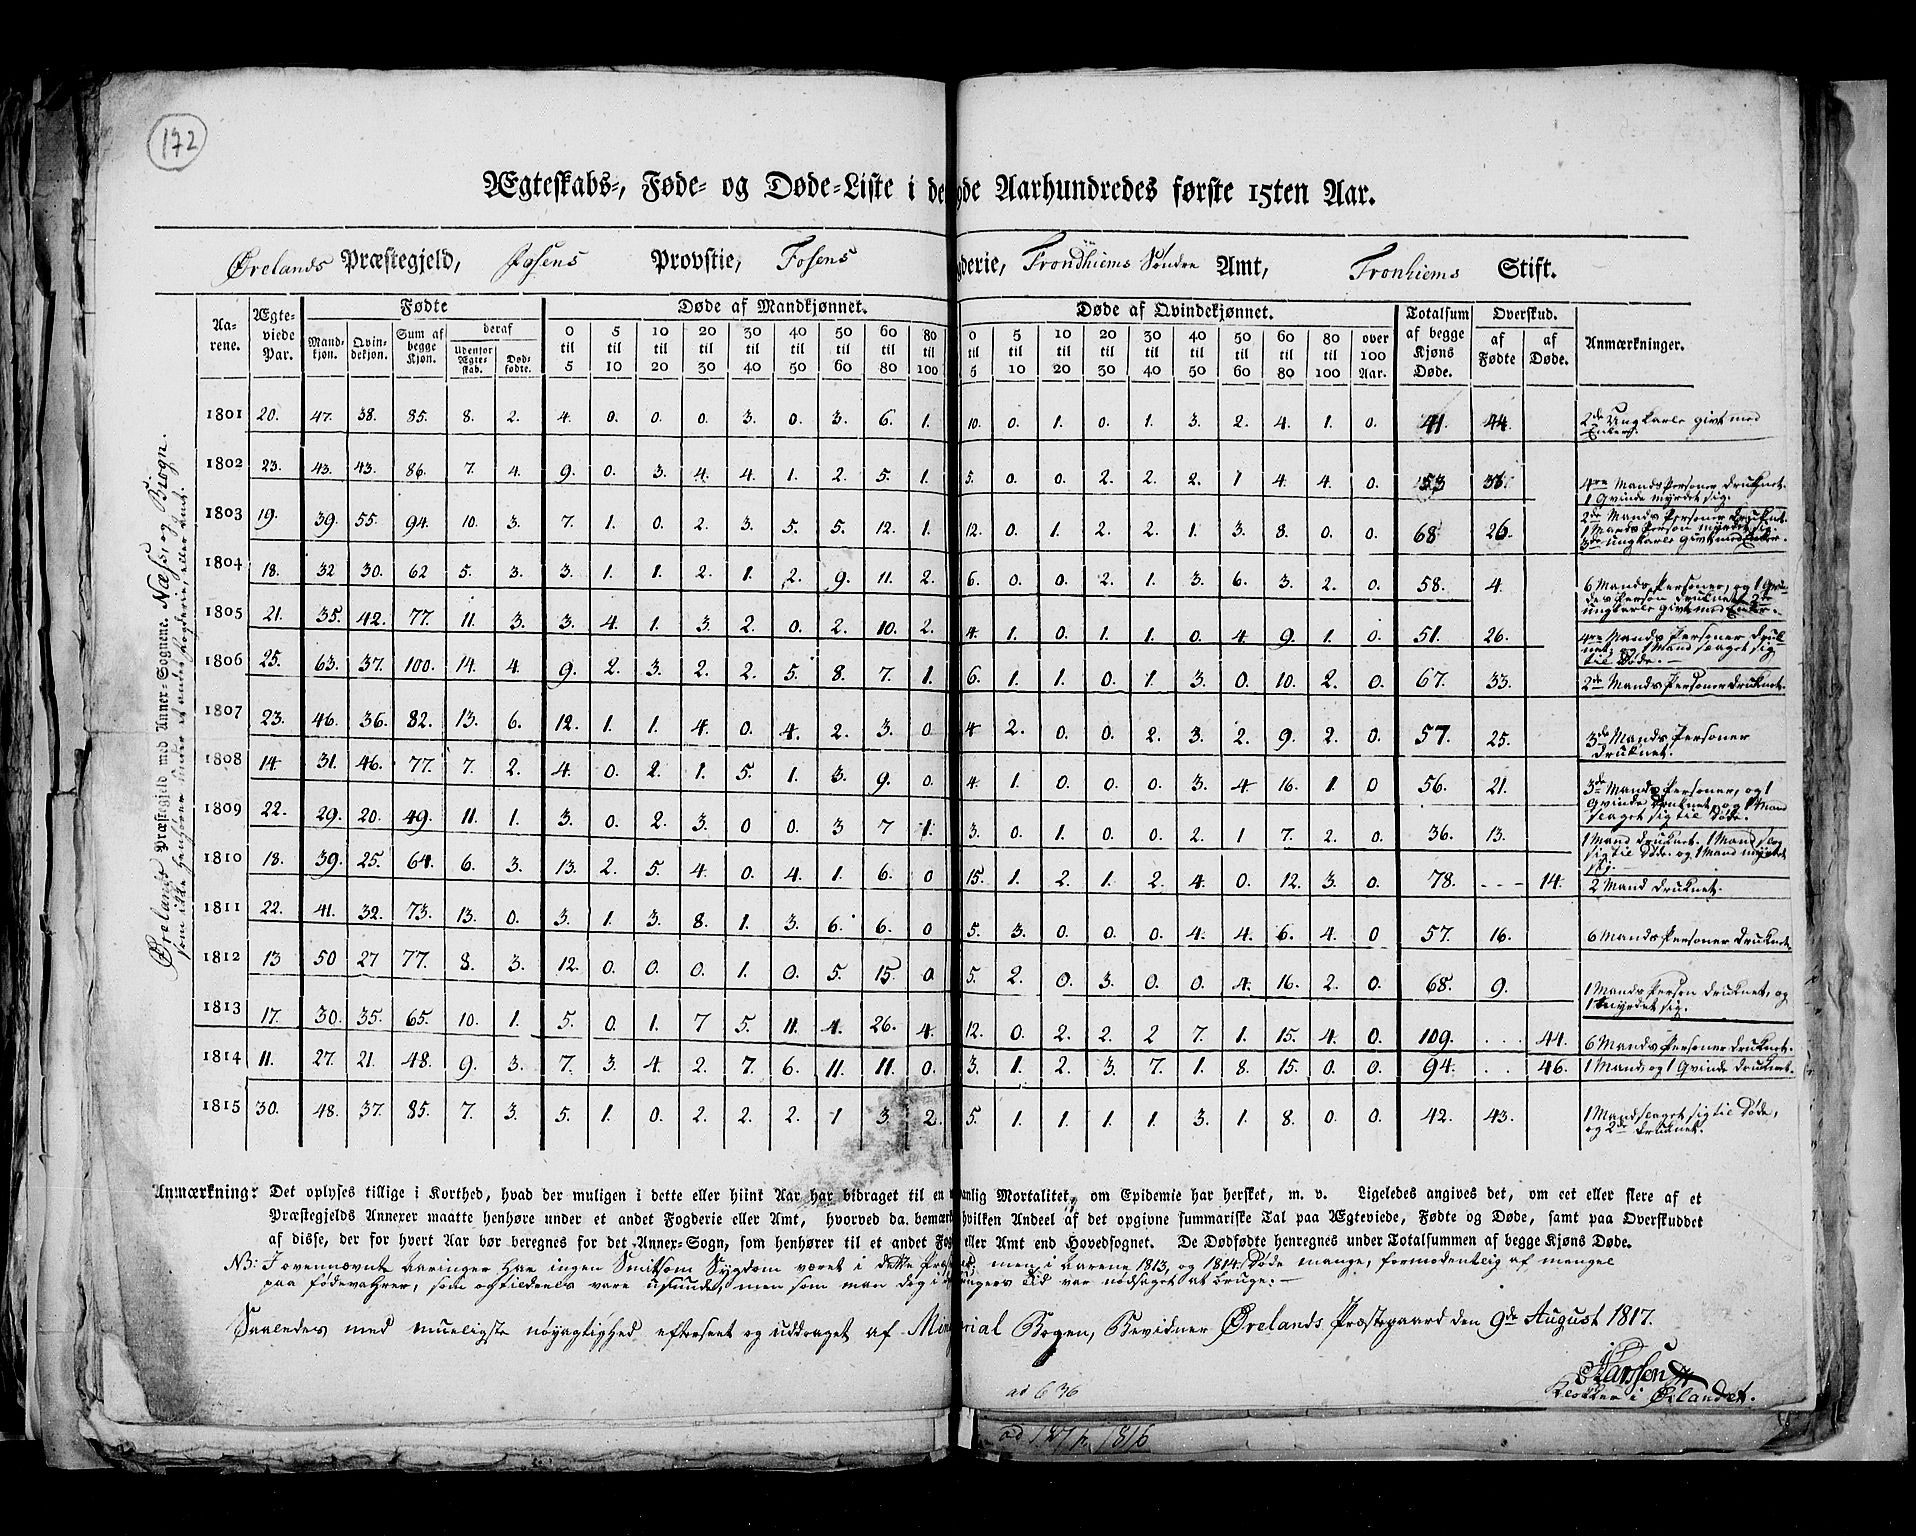 172
Ægteskabs-, Føde- og Døde-Liste i de gde Aarhundredes første 15ten Aar.
Ørelands Præstegjeld, Fosens Provstie, Fosens gderie, Trondhiems Søndre Amt, Tronhiems Stift.
Ørelands Præstegjeld med Anner-Sognene. Næss, og Biogn.
som ikke henhører under et andet Fogderie, eller Amt.
Aarene. Ægteviede Par. Fødte Døde af Mandkjønnet. Døde af Qvindekjønnet. Totalsum af begge Kjøns Døde. Overskud. Anmærkninger.
Mandkjøn. Qvindekjøn. Sum af begge Kjøn. deraf Udenfor Ægteskab. Dødfødte. 0 til 5 5 til 10 10 til 20 20 til 30 30 til 40 40 til 50 50 til 60 60 til 80 80 til 100 0 til 5 5 til 10 10 til 20 20 til 30 30 til 40 40 til 50 50 til 60 60 til 80 80 til 100 over 100 Aar. af Fødte af Døde.
1801 20. 47. 38. 85. 8. 2. 4. 0. 0. 0. 3. 0. 3. 6. 1. 10. 0. 1. 0. 1. 3. 2. 4. 1. 0. 41. 44. 2de Ungkarle givt med
Enker.
1802 23. 43. 43. 86. 7. 4. 9. 0. 3. 4. 4. 1. 2. 5. 1. 5. 0. 0. 2. 2. 2. 1 4. 4. 0. 53 4re Mands Personer druknet.
1 Qvinde myrdet sig.
1803 19. 39. 55. 94. 10. 3. 7. 1. 0. 2. 3. 5. 5. 12. 1. 12. 0. 1. 2. 2. 1. 3. 8. 0. 0. 68. 26. 2de Mands Personer druknet.
1 Mands Person myrdet sig.
3de Ungkarle givt med Enker.
1804 18. 32 30. 62 5. 3. 3. 1. 1. 2. 1. 2. 9. 11. 2. 6. 0. 0. 2. 1. 3. 6. 3. 2. 0. 58. 4. 6 Mands Personer, og 1 Qvin-
des Person druknet, 2de
Ungkarle givt med Enker.
1805 21. 35. 42. 77. 11. 3. 3. 4. 1. 3. 2. 0. 2. 10. 2. 4. 1. 0. 1. 1. 0. 4. 9. 1. 0. 51. 26. 4re Mands Personer druk-
net, og 1 Mand seaget sig
til Døde.
1806 25. 63. 37. 100. 14. 4. 9. 2. 3. 2. 2. 5. 8. 7. 1. 6. 1. 1. 0. 1. 3. 0. 10. 2. 0. 67. 33. 2de Mands Personer druknet.
1807 23. 46. 36. 82. 13. 6. 12. 1. 1. 4. 0. 4. 2. 3. 0 4 2. 0. 0. 2. 3. 2. 9. 2. 0. 57. 25. 3de Mands Personer
druknet.
1808 14. 31. 46. 77. 7. 2. 4. 0. 2. 1. 5. 1. 3. 9. 0. 4. 1. 0. 0. 0. 3. 4 16. 1. 0 56. 21. 3de Mands Personer, og 1
Qvinde druknet, og 1 Mand
seaget sig til Døde.
1809 22. 29. 20. 49. 11. 1. 3. 0. 2. 3. 0 0. 3 7 1. 3. 0. 1. 0. 0. 2. 1 7. 2. 0. 36. 13. 1 Mand druknet. 1 Mand seag
sig til Døde. og 1 Mand myrdet
sig.
1810 18. 39. 25. 64. 6. 3. 13. 2. 5. 4. 0. 4. 1. 6. 0 15. 1. 2. 1. 2 4. 0. 12. 3. 0. 78. - - - 14. 2 Mand druknet.
1811 22. 41. 32. 73. 13. 0. 3. 1. 3. 8. 1. 3. 6. 6. 0 5. 3. 0. 0. 0. 4. 4. 6. 4. 0 57. 16. 6 Mands Personer druknet.
1812 13 50 27 77. 8. 3. 12. 0. 0. 0. 1. 0. 5. 15. 0. 5. 2. 0. 3. 0. 0. 4. 16. 2. 0. 68. 9. 1 Mands Person druknet, og
1 myrdet sig.
1813 17. 30. 35. 65. 10. 1. 5. 0. 1. 7 5. 11. 4. 26. 4. 12. 0. 2. 2. 2 7. 1. 15. 4. 0. 109. . . . 44. 6 Mands Personer druknet.
1814 11. 27. 21. 48. 9. 3. 7. 3. 4. 2. 7. 6. 11. 11. 0. 3. 1. 2. 3. 7. 1. 8. 15. 0. 0. 94. . . 46. 1 Mand, og 1 Qvinde druknet.
1815 30. 48. 37. 85. 7. 3. 5. 1. 0. 2. 2. 2. 1 3. 2. 5. 1. 1. 1. 1. 3. 1. 8. 0. 0. 42. 43. 1 Mand seaget sig til Døde,
og 2de druknet.
Anmærkning: Det oplyses tillige i Korthed, hvad der muligen i dette eller hiint Aar har bidraget til en anlig Mortalitet, om Epidemie har hersket, m. v. Ligeledes angives det, om eet eller flere af et
Præstegjelds Annexer maatte henhøre under et andet Fogderie eller Amt, hvorved da bemærk hvilken Andeel af det opgivne summariske Tal paa Ægteviede, Fødte og Døde, samt paa Overskuddet
af disse, der for hvert Aar bør beregnes for det Anner-Sogn, som henhører til et andet Fog eller Amt end Hovedsognet. De Dødfødte henregnes under Totalsummen af begge Kjøns Døde.
NB: I ovennævnte Aaringer har ingen Smitsom Sygdom været i dette Præ men i Aarene 1813, og 1814. Døde mange, formodentlig af mangel
paa fødevahrer, som og tildeels vare usunde, men som man deg i ungers tid var nødsaget at bruge.
Saaledes med mueligste nøyagtighed efterseet og uddraget af Min rial Bogen, Bevidner Ørelands Præstegaard den 9de August 1817.
Klokker i Ørlandet.
ad 636
1816